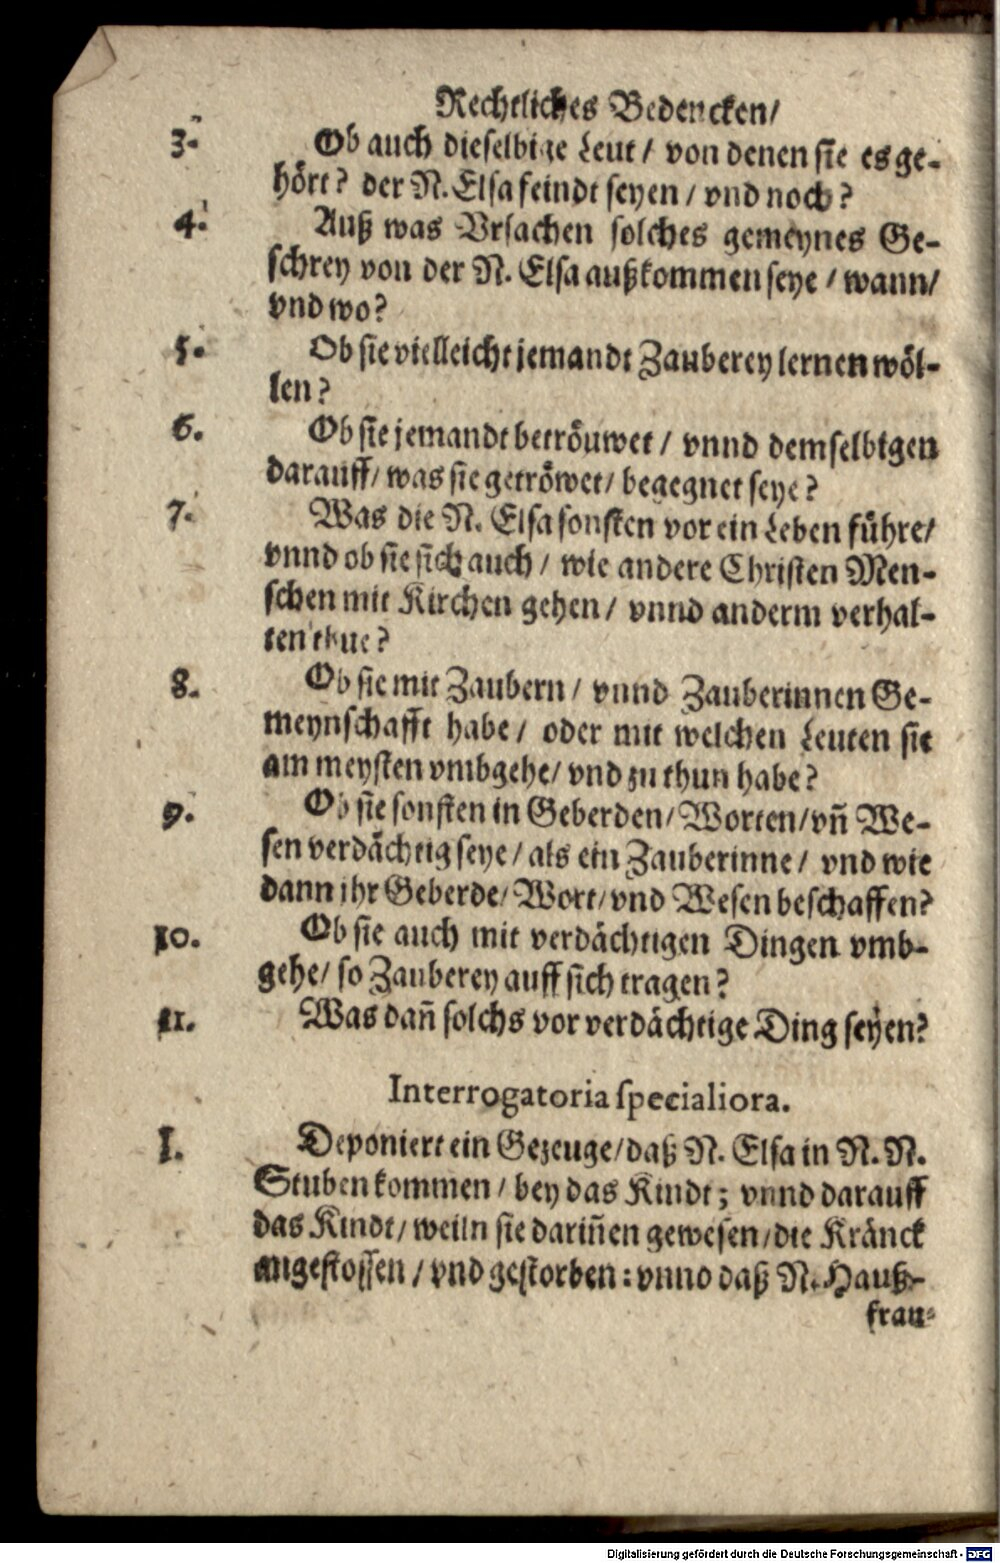 Rechtliches Bedencken/
3. Ob auch dieselbige Leut / von denen sie es ge-
hört? der N. Elsa feindt seyen / vnd noch?
4. Auß was Vrsachen solches gemeynes Ge-
schrey von der N. Elsa außkommen seye / wann/
vnd wo?
5. Ob sie vielleicht jemandt Zauberey lernen wöl-
len?
6. Ob sie jemandt betröuwet / vnnd demselbigen
darauff/ was sie getröwet/ begegnet seye?
7. Was die N. Elsa sonsten vor ein Leben führe/
vnnd ob sie sich auch / wie andere Christen Men-
schen mit Kirchen gehen / vnnd anderm verhal-
ten thue?
8. Ob sie mit Zaubern / vnnd Zauberinnen Ge-
meynschafft habe / oder mit welchen Leuten sie
am meysten vmbgehe/ vnd zu thun habe?
9. Ob sie sonsten in Geberden/ Worten/ vñ We-
sen verdächtig seye / als ein Zauberinne / vnd wie
dann ihr Geberde/ Wort/ vnd Wesen beschaffen?
10. Ob sie auch mit verdächtigen Dingen vmb-
gehe/ so Zauberey auff sich tragen?
11. Was dañ solchs vor verdächtige Ding seyen?
Interrogatoria specialiora.
1. Deponiert ein Gezeuge/ daß N. Elsa in N. N.
Stuben kommen / bey das Kindt; vnnd darauff
das Kindt/ weiln sie dariñen gewesen/ die Kränck
angestossen / vnd gestorben: vnnd daß N. Hauß-
frau-
Digitalisierung gefördert durch die Deutsche Forschungsgemeinschaft - DFG